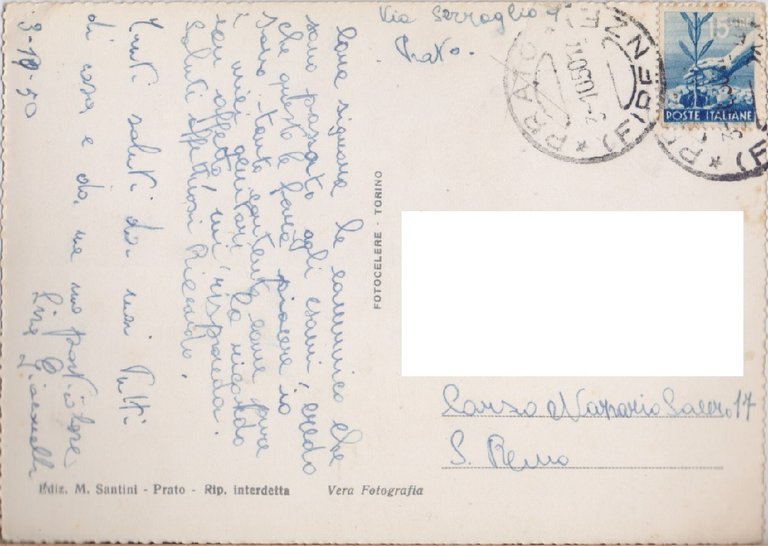 Via Serraglio
Prato.
PRATO
(FIRENZE)
POSTE ITALIANE
15
Cara signora le comunico che
sono passato agli esami, credo
che questo le farà piacere io
sono tanto contento come pure
i miei genitori. La ricordo
con affetto, mi risponda.
Saluti affettuosi Riccardo.
Tanti saluti da noi tutti
di casa e da me in particolare
3-10-50
FOTOCELERE - TORINO
Corso Nazario Sauro 17
S. Remo
Ediz. M. Santini - Prato - Rip. interdetta
Vera Fotografia